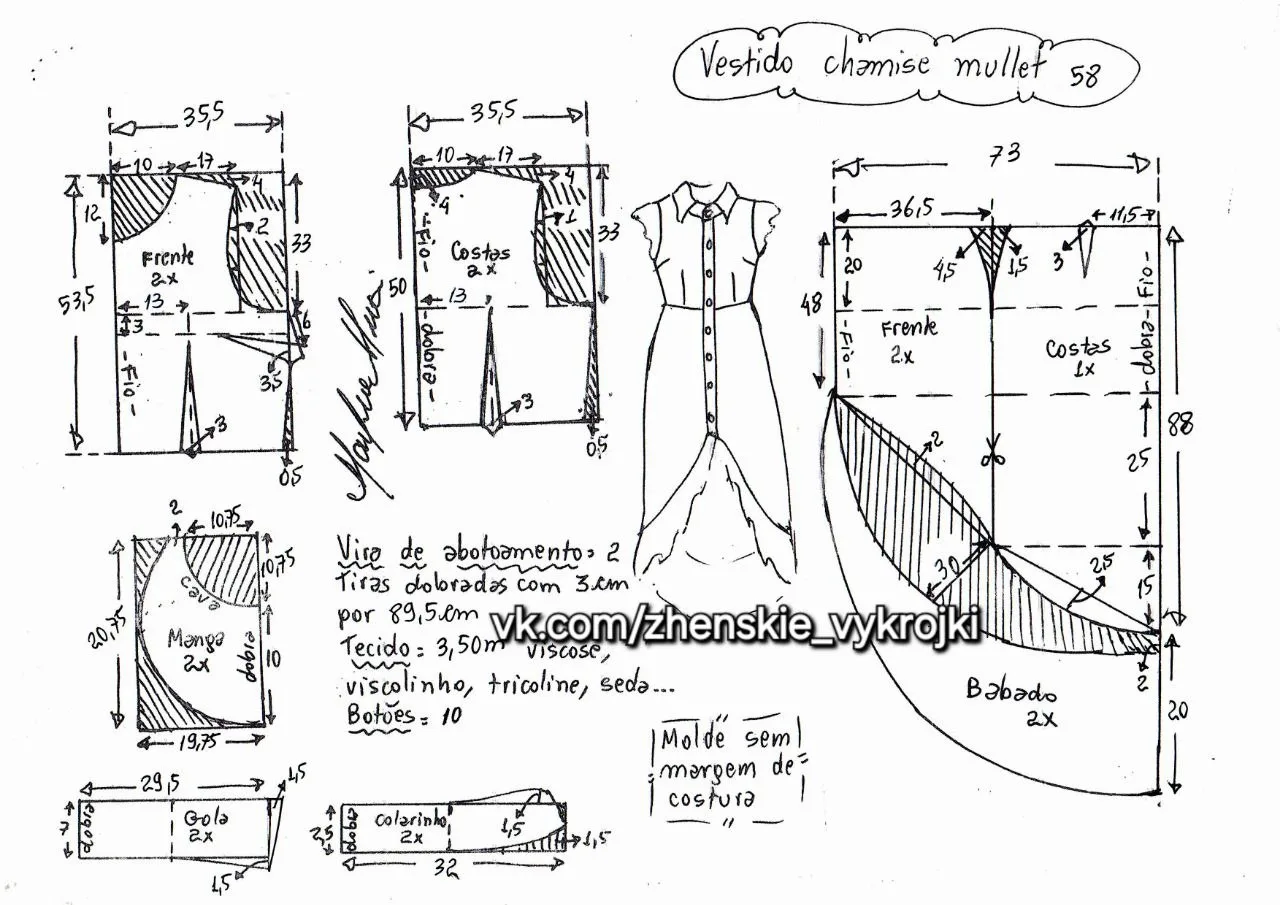 Vestido chamise mullet 58
35,5
10
17
4
12
2
33
Frente
2x
53,5
13
3
6
Fio
3,5
3
0,5
35,5
10
17
4
4
1
33
Fio
Costas
2x
50
13
dobra
3
0,5
73
36,5
11,5
20
4,5
1,5
3
48
Fio
Frente
2x
Fio
Costas
1x
dobra
88
2
25
30
2,5
15
2
Babado
2x
20
2
10,75
10,75
cava
20,75
Manga
2x
dobra
10
19,75
Vira de abotoamento = 2
Tiras dobradas com 3 cm
por 89,5 cm
vk.com/zhenskie_vykrojki
Tecido = 3,50m viscose,
viscolinho, tricoline, seda...
Botões = 10
Molde sem
margem de
costura
29,5
1,5
7
dobra
Gola
2x
1,5
2,5
dobra
colarinho
2x
1,5
1,5
32